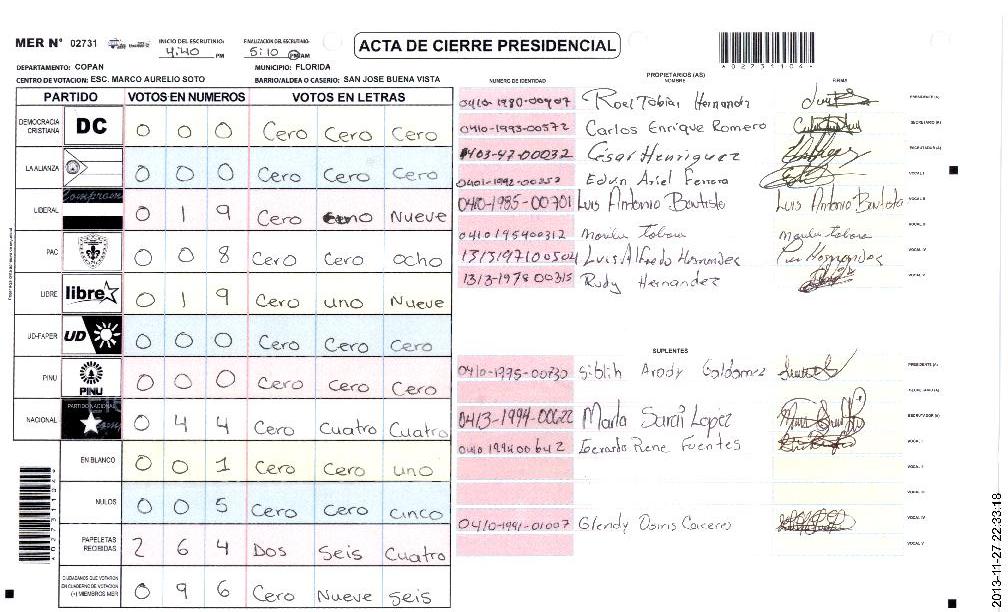 MER N° 02731
INICIO DEL ESCRUTINIO: 4:40 PM
FINALIZACION DEL ESCRUTINIO: 5:10 PM AM
ACTA DE CIERRE PRESIDENCIAL
A02731104
DEPARTAMENTO: COPAN
MUNICIPIO: FLORIDA
CENTRO DE VOTACION: ESC. MARCO AURELIO SOTO
BARRIO/ALDEA O CASERIO: SAN JOSE BUENA VISTA
PARTIDO VOTOS EN NUMEROS VOTOS EN LETRAS
DEMOCRACIA CRISTIANA DC 0 0 0 Cero Cero Cero
LA ALIANZA 0 0 0 Cero Cero Cero
LIBERAL 0 1 9 Cero uno Nueve
PAC 0 0 8 Cero Cero ocho
LIBRE libre 0 1 9 Cero uno Nueve
UD-FAPER UD 0 0 0 Cero Cero Cero
PINU PINU 0 0 0 Cero Cero Cero
NACIONAL PARTIDO NACIONAL 0 4 4 Cero Cuatro Cuatro
EN BLANCO 0 0 1 Cero Cero uno
NULOS 0 0 5 Cero Cero cinco
PAPELETAS RECIBIDAS 2 6 4 Dos Seis Cuatro
CIUDADANOS QUE VOTARON EN CUADERNO DE VOTACION (+) MIEMBROS MER 0 9 6 Cero Nueve seis
PROPIETARIOS (AS)
NUMERO DE IDENTIDAD NOMBRE FIRMA
0410-1980-00907 Roel Tobias Hernandz PRESIDENTE (A)
0410-1993-00572 Carlos Enrique Romero SECRETARIO (A)
0403-47-00032 César Henriquez ESCRUTADOR (A)
0401-1992-00252 Edvin Ariel Ferrera VOCAL I
0410-1985-00701 Luis Antonio Bautista Luis Antonio Bautista VOCAL II
0410195400312 VOCAL III
1313197100504 Luis Alfredo Hernandez VOCAL IV
1313-1978 00315 Rudy Hernandez VOCAL V
SUPLENTES
0410-1995-00730 PRESIDENTE (A)
SECRETARIO (A)
0413-1994-00622 Marla Sarai Lopez ESCRUTADOR (A)
0410 199400642 Gerardo Rene Fuentes VOCAL I
VOCAL II
VOCAL III
0410-1991-01007 Glendy VOCAL IV
VOCAL V
A02731104
2013-11-27 22:33:18